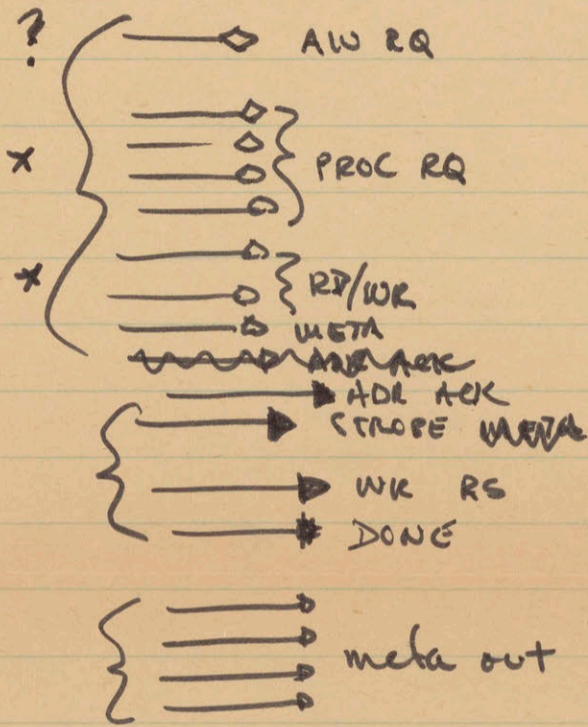 ? AW RQ
x PROC RQ
x RD/WR
META
ADR ACK
ADR ACK
STROBE
WR RS
DONE
meta out